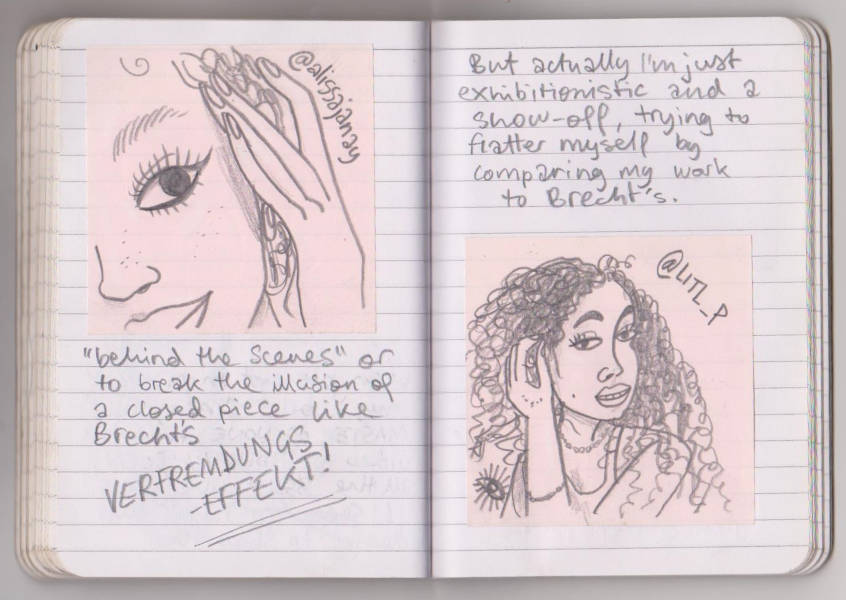 @alissajanay
"behind the scenes" or
to break the illusion of
a closed piece like
Brecht's
VERFREMDUNGS
-EFFEKT!
But actually I'm just
exhibitionistic and a
show-off, trying to
flatter myself by
comparing my work
to Brecht's.
@LITL_P